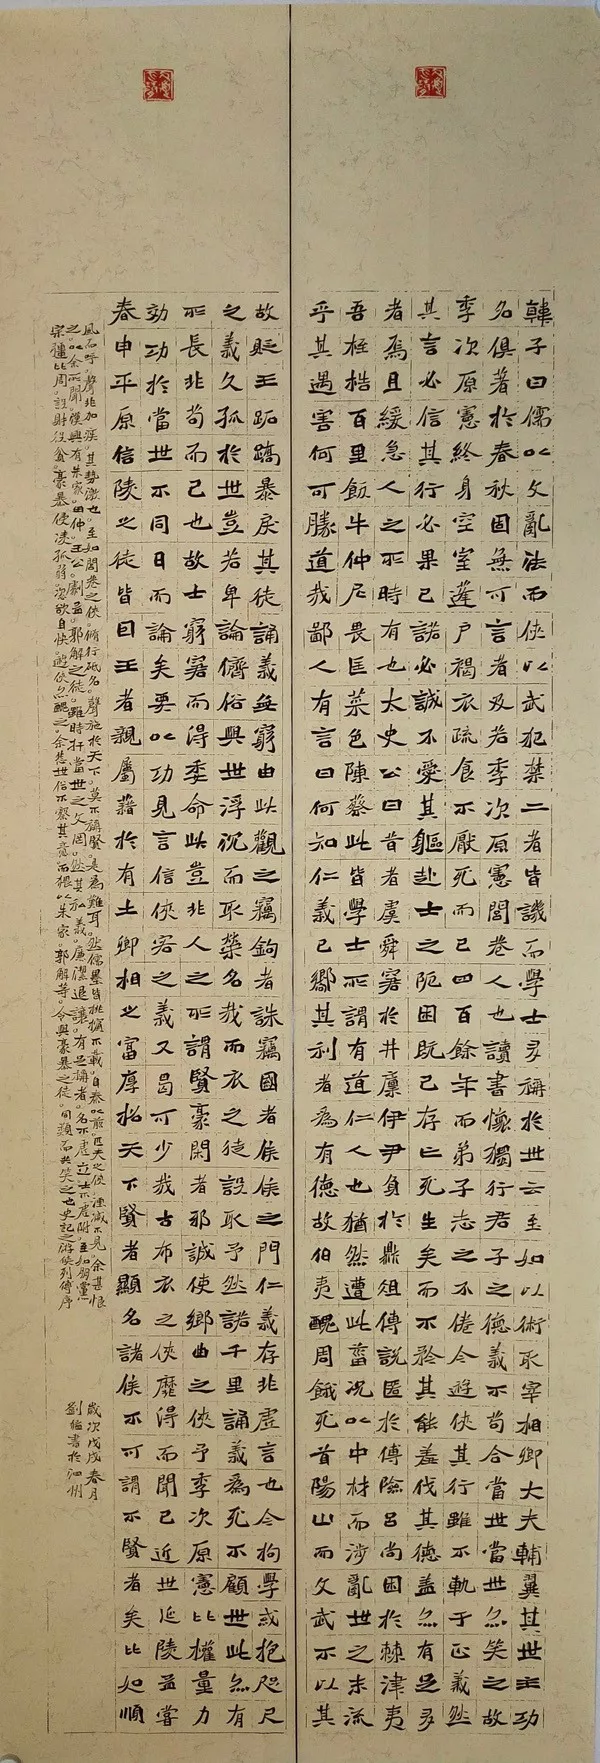 韓子曰儒以文亂法而俠以武犯禁二者皆譏而學士多稱於世云至如以術取宰相卿大夫輔翼其世主功
名俱著於春秋固無可言者及若季次原憲閭巷人也讀書懷獨行君子之德義不苟合當世當世亦笑之故
季次原憲終身空室蓬户褐衣疏食不厭死而已四百餘年而弟子志之不倦今遊俠其行雖不軌于正義然
其言必信其行必果已諾必誠不愛其軀赴士之阨困既已存亡死生矣而不矜其能羞伐其德蓋亦有足多
者焉且緩急人之所時有也太史公曰昔者虞舜窘於井廩伊尹負於鼎俎傅說匿於傅險呂尚困於棘津夷
吾桎梏百里飯牛仲尼畏匡菜色陳蔡此皆學士所謂有道仁人也猶然遭此菑況以中材而涉亂世之末流
乎其遇害何可勝道哉鄙人有言曰何知仁義已嚮其利者為有德故伯夷醜周餓死首陽山而文武不以其
故貶王跖蹻暴戾其徒誦義無窮由此觀之竊鉤者誅竊國者侯侯之門仁義存非虛言也今拘學或抱咫尺
之義久孤於世豈若卑論儕俗與世浮沉而取榮名哉而衣之徒設取予然諾千里誦義為死不顧世此亦有
所長非苟而已也故士窮窘而得委命此豈非人之所謂賢豪閒者邪誠使鄉曲之俠予季次原憲比權量力
効功於當世不同日而論矣要以功見言信俠客之義又曷可少哉古布衣之俠靡得而聞已近世延陵孟嘗
春申平原信陵之徒皆因王者親屬藉於有土卿相之富厚招天下賢者顯名諸侯不可謂不賢者矣比如順
風而呼。聲非加疾。其勢激也。至如閭巷之俠。脩行砥名。聲施於天下。莫不稱賢。是為難耳。然儒墨皆排擯不載。自秦以前。匹夫之俠。湮滅不見。余甚恨
之。以余所聞。漢興有朱家。田仲。王公。劇孟。郭解之徒。雖時扞當世之文罔。然其私義。廉潔退讓。有足稱者。名不虛立。士不虛附。至如朋黨
宗彊比周。設財役貧。豪暴侵凌孤弱。恣欲自快。遊俠亦醜之。余悲世俗不察其意。而猥以朱家。郭解等。令與豪暴之徒。同類而共笑之也史記之游俠列傳序
歲次戊戌春月
劉 書於泗州